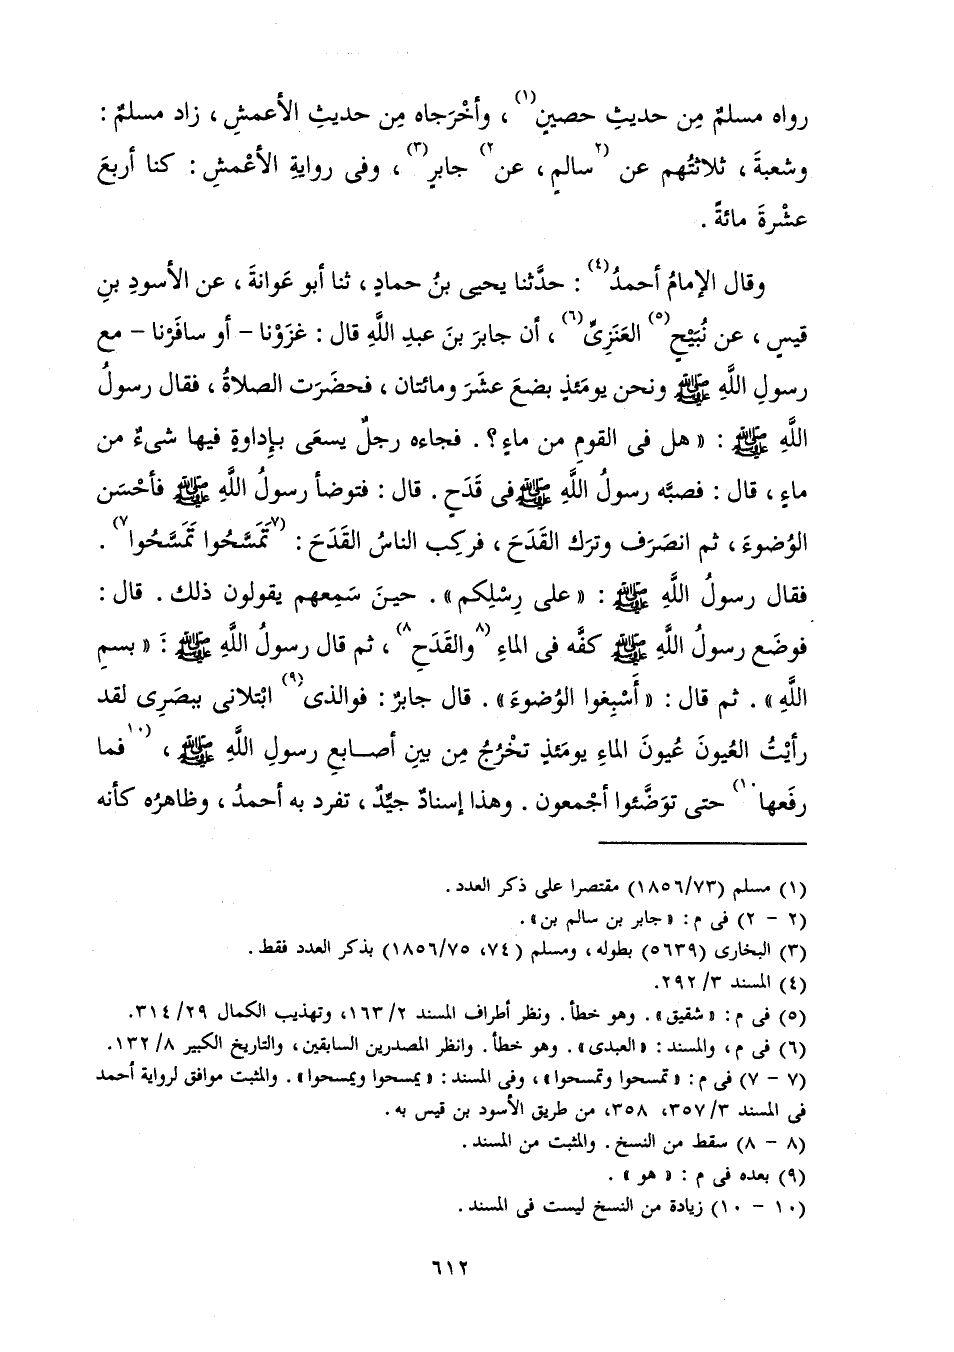 رواه مسلمٌ مِن حديثِ حصينٍ(١) ، وأخْرَجاه مِن حديثِ الأعمشِ ، زاد مسلمٌ :
وشعبةَ ، ثلاثتُهم عن (٢ سالمٍ ، عن٢) جابرٍ(٣) ، وفى روايةِ الأعْمشِ : كنا أربعَ
عشْرةَ مائةً .
وقال الإمامُ أحمدُ(٤) : حدَّثنا يحيى بنُ حمادٍ ، ثنا أبو عَوانةَ ، عن الأسودِ بنِ
قيسٍ ، عن نُبَيْحٍ(٥) العَنَزِىِّ(٦) ، أن جابرَ بنَ عبدِ اللَّهِ قال : غزَوْنا – أو سافَرْنا – مع
رسولِ اللَّهِ ﷺ ونحن يومَئذٍ بضعَ عشَرَ ومائتان ، فحضَرَت الصلاةُ ، فقال رسولُ
اللَّهِ ﷺ : « هل فى القومِ من ماءٍ ؟ . فجاءه رجلٌ يسعَى بإداوةٍ فيها شىءٌ من
ماءٍ ، قال : فصبَّه رسولُ اللَّهِ ﷺ فى قَدَحٍ . قال : فتوضأ رسولُ اللَّهِ ﷺ فأحْسَن
الوُضوءَ ، ثم انصَرَف وترَك القَدَحَ ، فركِب الناسُ القَدَحَ : (٧ تَمَسَّحُوا تَمَسَّحُوا ٧) .
فقال رسولُ اللَّهِ ﷺ : « على رِسْلِكم » . حينَ سَمِعهم يقولون ذلك . قال :
فوضَع رسولُ اللَّهِ ﷺ كفَّه فى الماءِ (٨ والقَدَحِ ٨) ، ثم قال رسولُ اللَّهِ ﷺ : « بسمِ
اللَّهِ » . ثم قال : « أَسْبِغوا الوُضوءَ » . قال جابرٌ : فوالذى(٩) ابْتلانى ببصَرِى لقد
رأيْتُ العُيونَ عُيونَ الماءِ يومَئذٍ تخْرُجُ مِن بينِ أصابعِ رسولِ اللَّهِ ﷺ ، (١٠ فما
رفَعها ١٠) حتى توَضَّئوا أجْمعون . وهذا إسنادٌ جيِّدٌ ، تفرد به أحمدُ ، وظاهرُه كأنه
(١) مسلم (١٨٥٦/٧٣) مقتصرا على ذكر العدد .
(٢ – ٢) فى م : « جابر بن سالم بن » .
(٣) البخارى (٥٦٣٩) بطوله ، ومسلم (٧٤، ١٨٥٦/٧٥) بذكر العدد فقط .
(٤) المسند ٣/ ٢٩٢.
(٥) فى م : « شقيق » . وهو خطأ . ونظر أطراف المسند ٢/ ١٦٣، وتهذيب الكمال ٢٩/ ٣١٤.
(٦) فى م ، والمسند : « العبدى » . وهو خطأ . وانظر المصدرين السابقين ، والتاريخ الكبير ٨/ ١٣٢.
(٧ – ٧) فى م : « تمسحوا وتمسحوا » ، وفى المسند : « يمسحوا ويمسحوا » . والمثبت موافق لرواية أحمد
فى المسند ٣/ ٣٥٧، ٣٥٨، من طريق الأسود بن قيس به .
(٨ – ٨) سقط من النسخ . والمثبت من المسند .
(٩) بعده فى م : « هو » .
(١٠ – ١٠) زيادة من النسخ ليست فى المسند .
٦١٢